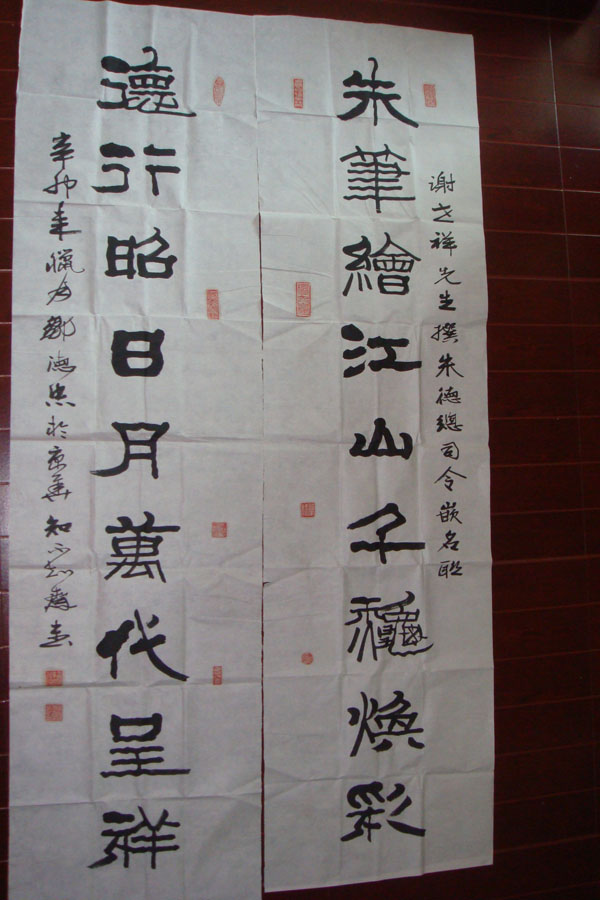 谢祥先生撰朱德總司令嵌名联
朱筆繪江山千穐煥彩
德行昭日月萬代呈祥
辛卯年臘月鄒德忠於京華知不知齋書